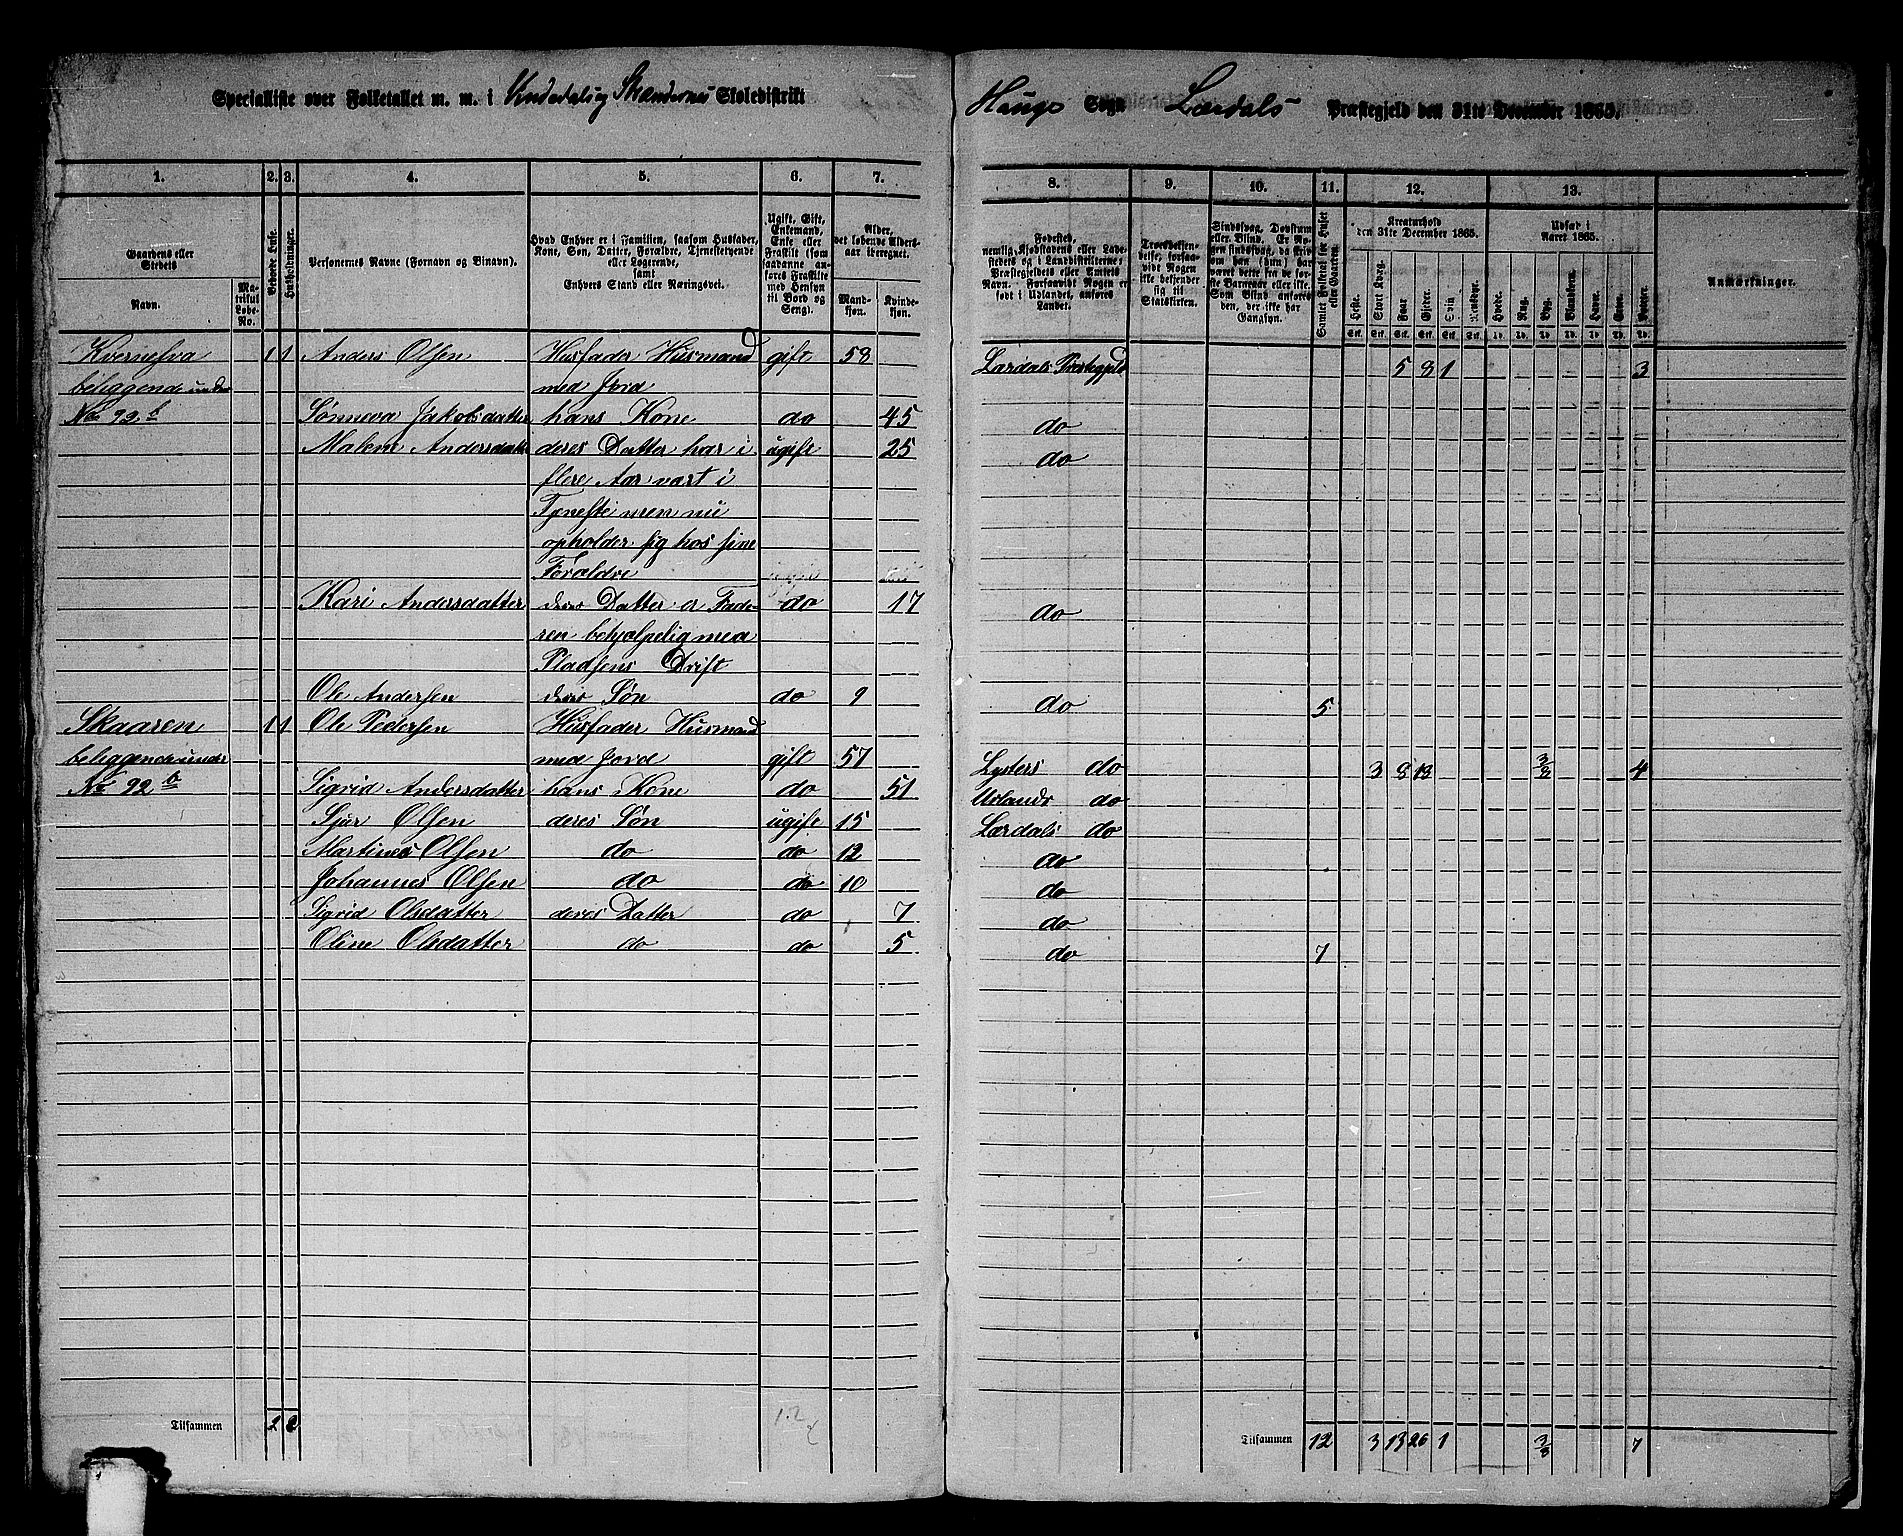 Specialliste over Folketallet m. m. i Vindedal og Skændernes Skoledistrikt
Haugs Sogn Lærdals Præstegjeld den 31te December 1865.
1. 2. 3. 4. 5. 6. 7. 8. 9. 10. 11. 12. 13.
Gaardens eller Stedets
Navn.
Matrikul Løbe-No.
Beboede Huse.
Husholdninger.
Personernes Navne (Fornavn og Binavn).
Hvad Enhver er i Familien, saasom Husfader, Kone, Søn, Datter, Forældre, Tjenestetyende eller Logerende, samt Enhvers Stand eller Næringsvei.
Ugift, Gift, Enkemand, Enke eller Fraskilt (som saadanne anføres Fraskilte med Hensyn til Bord og Seng).
Alder, det løbende Aldersaar iberegnet.
Mandkjøn. Kvindekjøn.
Fødested, nemlig Kjøbstadens eller Ladestedets og i Landdistrikterne: Præstegjeldets eller Amtets Navn. Forsaavidt Nogen er født i Udlandet, anføres Landet.
Troesbekjendelse, forsaavidt Nogen ikke bekjender sig til Statskirken.
Sindssvag, Døvstum eller Blind. Er Nogen sindssvag, da skrives om han (hun) har været dette fra de første Barneaar eller ikke. Som Blind anføres den, der ikke har Gangsyn.
Samlet Folketal for Huset eller Gaarden.
Kreaturhold den 31te December 1865.
Heste. Stort Kvæg. Faar. Gjeder. Svin. Rensdyr.
Udsæd i Aaret 1865.
Hvede. Rug. Byg. Blandkorn. Havre. Erter. Poteter.
Anmærkninger.
Kvernelva 1 1 Anders Olsen Husfader Husmand gift 58 Lærdals Præstegjeld 5 8 1 3
beliggende under med Jord
No 92 b Sønneva Jakobsdatter hans Kone do 45 do
Malene Andersdatter deres Datter har i ugift 25 do
flere Aar vært i
Tjeneste men nu
opholder sig hos sine
Forældre
Kari Andersdatter deres Datter er Fade- do 17 do
ren behjælpelig med
Pladsens Drift
Ole Andersen deres Søn do 9 do 5
Skaaren 1 1 Ole Pedersen Husfader Husmand
beliggende under med Jord gift 57 Lysters do 3 8 18 3/8 4
No 92 b Sigrid Andersdatter hans Kone do 51 Urlands do
Sjur Olsen deres Søn ugift 15 Lærdals do
Martines Olsen do do 12 do
Johannes Olsen do do 10 do
Sigrid Olsdatter deres Datter do 7 do
Oline Olsdatter do do 5 do 7
Tilsammen 2 2 12
Tilsammen 12 3 13 26 1 3/8 7